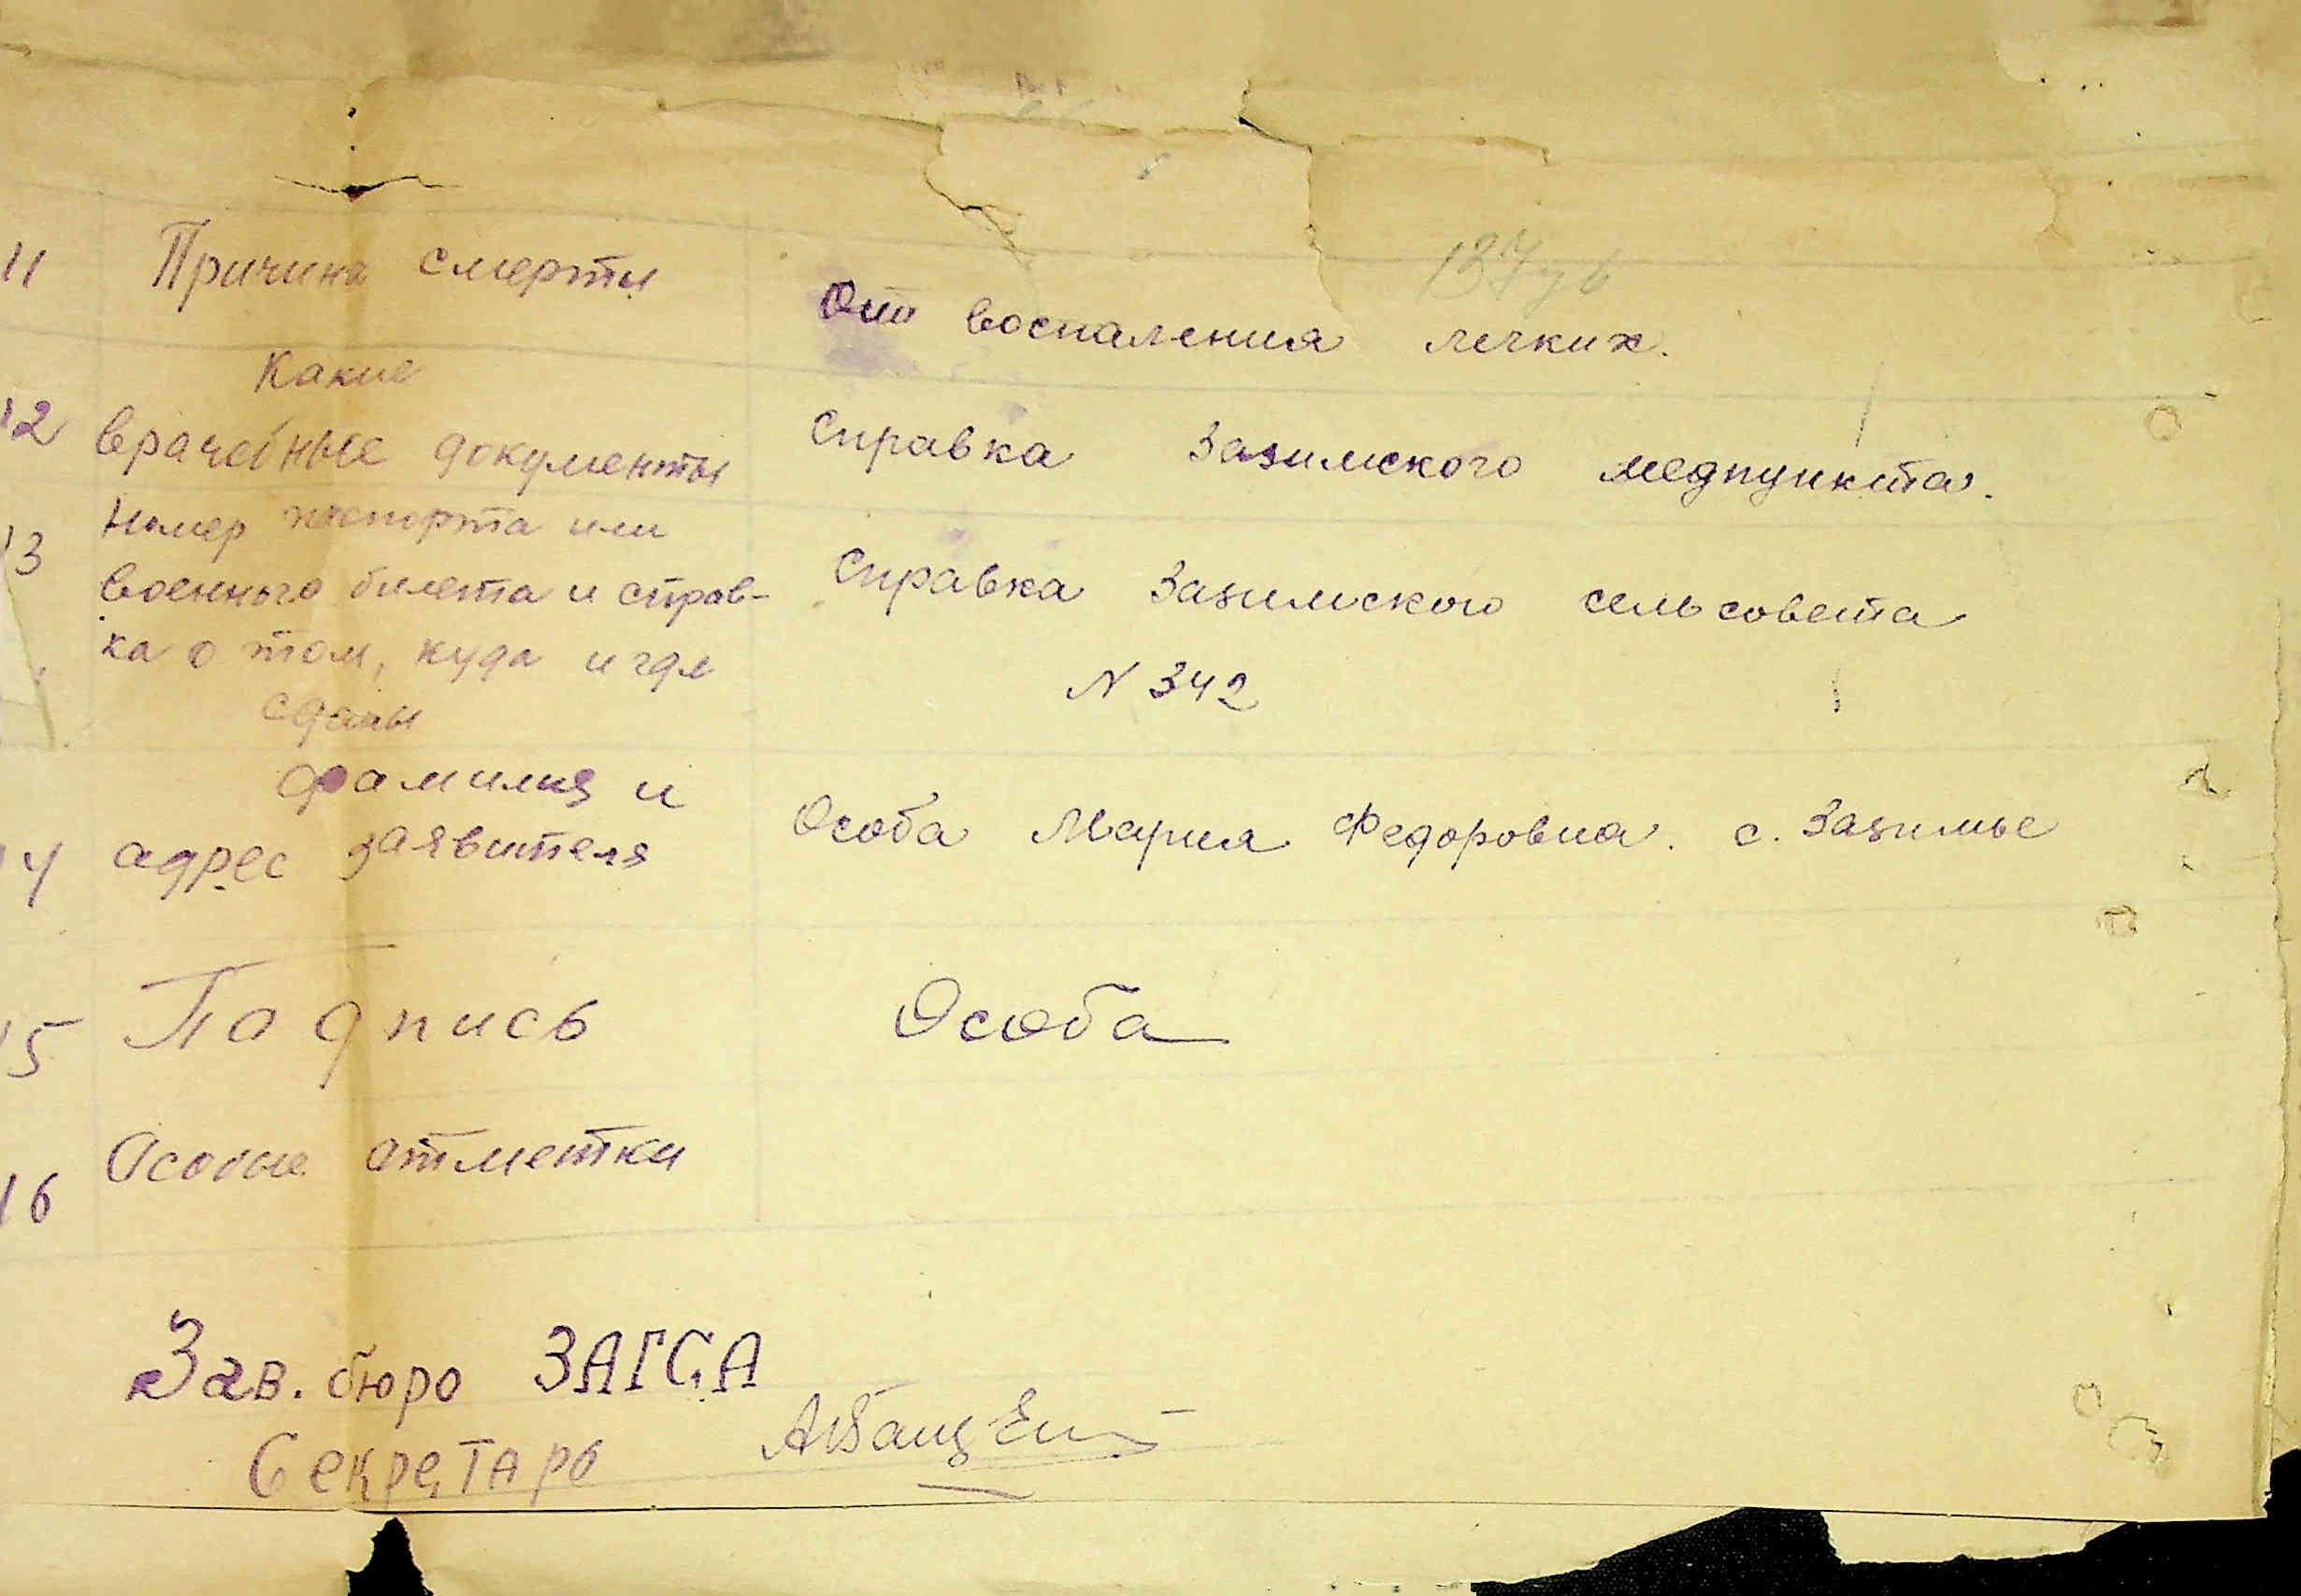 11 Причина смерти
От воспаления легких.
Какие
12 врачебные документы
Справка Зазимского медпункта.
Номер паспорта или
13 военного билета и справ-
ка о том, куда и где
сданы
Справка Зазимского сельсовета
N 342
фамилия и
14 адрес заявителя
Особа Мария Федоровна. с. Зазимье
15 Подпись
Особа
16 Особые отметки
Зав. бюро ЗАГСА
Секретарь